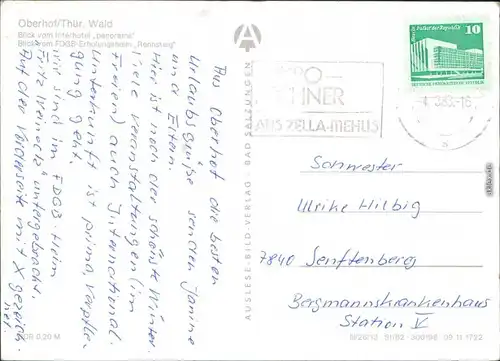 Oberhof/Thür. Wald
Blick vom Interhotel „panorama“
Blick vom FDGB-Erholungsheim „Rennsteig“
Aus Oberhof die besten
Urlaubsgrüße senden Janine
und Eltern.
Hier ist noch der schönste Winter.
Viele Veranstaltungen (im
Freien) auch International.
Unterkunft ist prima, Verpfle-
gung geht.
Wir sind im FDGB-Heim
„Fritz Weineck“ untergebracht.
Auf der Vorderseite mit X gezeich-
net.
AUSLESE-BILD-VERLAG · BAD SALZUNGEN
RO—
HNER
AUS ZELLA-MEHLIS
10
Schwester
Ulrike Hilbig
7840 Senftenberg
Bergmannskrankenhaus
Station V
0,20 M